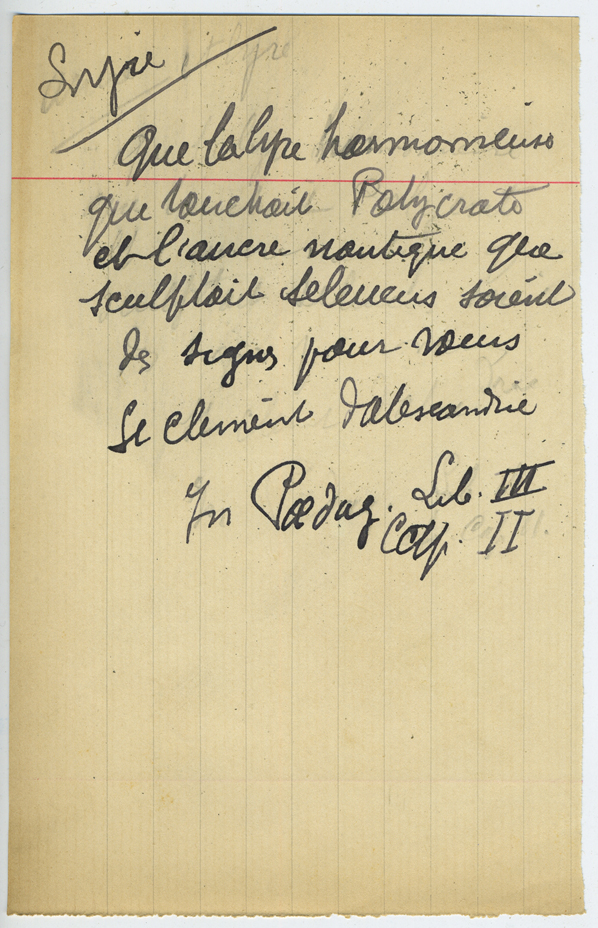 Que la lyre harmonieuse
que touchait Polycrate
et l'ancre nautique que
sculptait Seleucus soient
des signes pour vous
St Clement d'Alexandrie
In Pædag. Lib. III
Cap. II